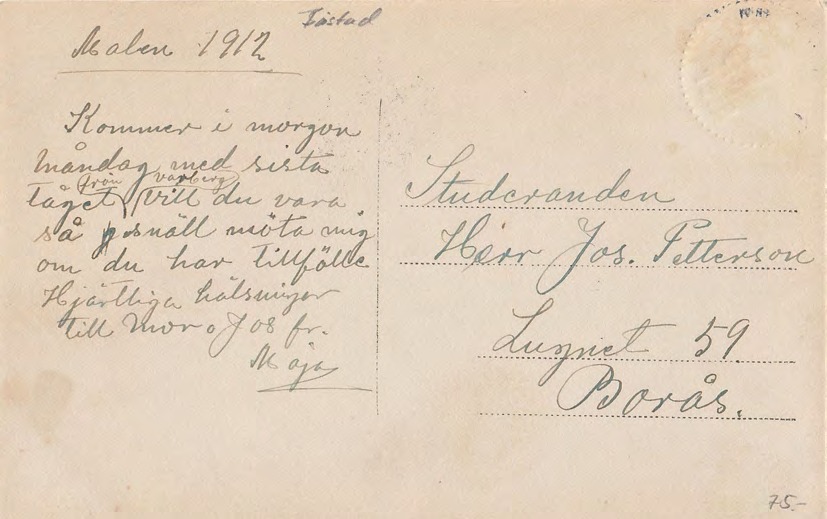 Iästad
Malen 1912
Kommer i morgon
måndag med sista
tåget från varberg vill du vara
så snäll möta mig
om du har tillfälle
Hjärtliga hälsningar
till Mor o Jos fr.
Maja
Studeranden
Herr Jos. Petterson
Lugnet 59
Borås.
75.-